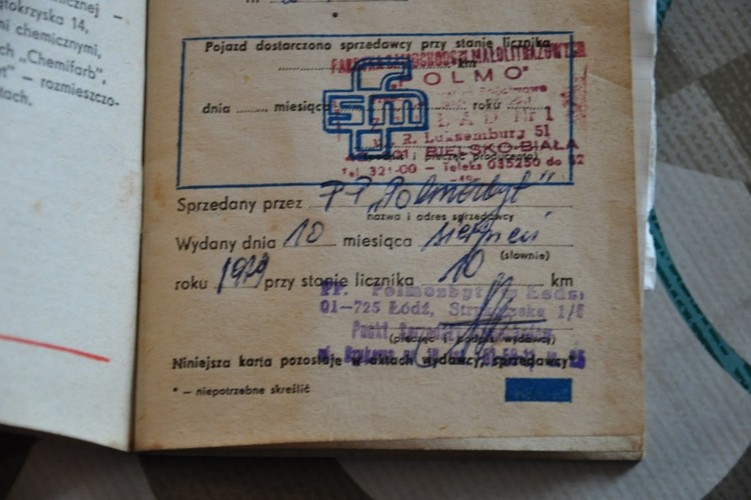 micznej –
ętokrzyska 14,
ni chemicznymi,
ch „Chemifarb",
yt" – rozmieszczo-
tach.
nr
*
Pojazd dostarczono sprzedawcy przy stanie licznika
km
FABRYKA SAMOCHODÓW MAŁOLITRAŻOWYCH
"POLMO"
dnia miesiąca roku
FSM
ZAKŁAD Nr 1
ul. R. Luksemburg 51
BIELSKO-BIAŁA
(podpis i pieczęć producenta)
Tel 321-00 – Teleks 035250 do 52
Sprzedany przez PP „Polmozbyt"
nazwa i adres sprzedawcy
Wydany dnia 10 miesiąca sierpień
(słownie)
roku 1979 przy stanie licznika 10 km
PP. Polmozbyt w Łodzi
01-725 Łódź, 1/5
Punkt Sprzedaży
(pieczęć i podpis wydawcy)
Niniejsza karta pozostaje w aktach wydawcy, sprzedawcy*
* – niepotrzebne skreślić